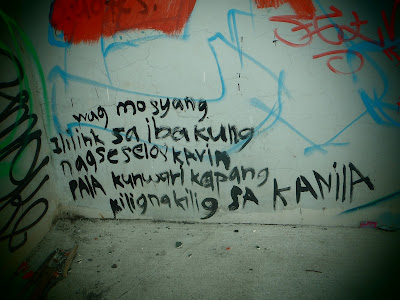 selos.
wag mosyang
ililink sa ibakung
nagseselos karin
PAIA kunwari kapang
kilignakilig SA KANilA